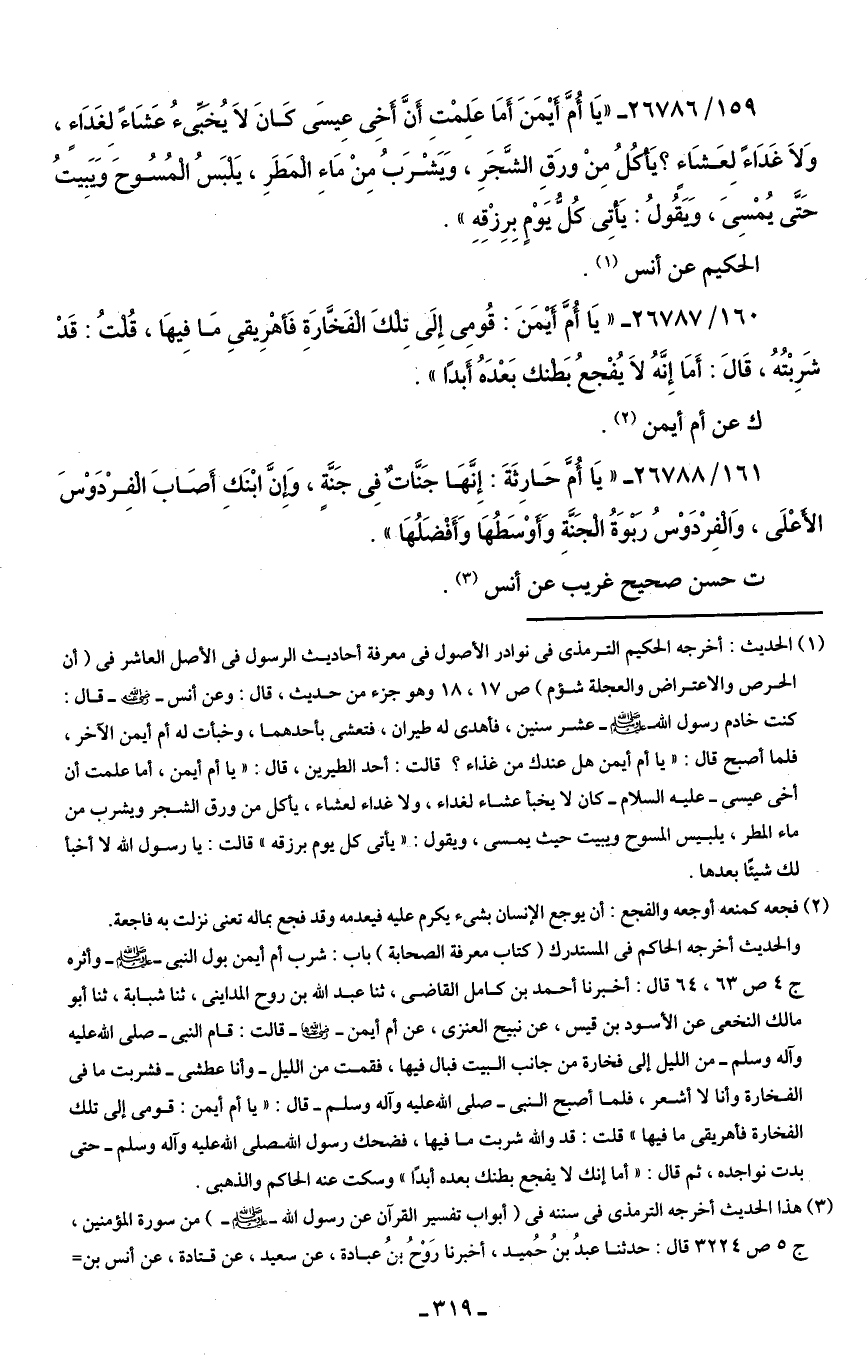 ١٥٩/ ٢٦٧٨٦ـ «يَا أُمَّ أَيْمَنَ أَمَا عَلِمْتِ أَنَّ أَخِى عِيسَى كَـانَ لاَ يُخَبِّىءُ عَشَاءً لغَدَاءٍ ،
وَلاَ غَدَاءً لِعَـشَاءٍ ؟ يَأكُلُ مِنْ وَرقِ الشَّجَرِ ، وَيَشْـرَبُ مِنْ مَاءِ الْمَطَرِ ، يَلْبَسُ الْمُسُـوحَ وَيَبِيتُ
حَتَّى يُـمْسِىَ ، وَيَقُولُ : يَأتِى كُلُّ يَوْمٍ بِرِزْقِهِ » .
الحكيم عن أنس (١) .
١٦٠/ ٢٦٧٨٧ـ « يَا أُمَّ أَيْمَنَ : قُومِى إِلَى تِلْكَ الْفَخَّارَةِ فَأهْرِيقِى مَـا فِيهَا ، قُلْتُ : قَدْ
شَرِبْتُهُ ، قَالَ : أَمَا إِنَّهُ لاَ يُفْجعُ بَطْنك بَعْدَهُ أَبدًا » .
ك عن أم أيمن (٢) .
١٦١/ ٢٦٧٨٨ـ « يَا أُمَّ حَـارِثَةَ : إِنَّهَـا جَنَّاتٌ فِى جَنَّةٍ ، وَإِنَّ ابْنَكِ أَصَـابَ الْفِـرْدَوْسَ
الأَعْلَى ، وَالْفِرْدَوْسُ رَبْوَةُ الْجَنَّةِ وَأَوْسَطُهَا وَأَفْضَلُهَا » .
ت حسن صحيح غريب عن أنس (٣) .
(١) الحديث : أخرجه الحكيم التـرمذى فى نوادر الأصول فى معرفة أحاديـث الرسول فى الأصل العاشر فى ( أن
الحـرص والاعتـراض والعجلة شـؤم ) ص ١٧ ، ١٨ وهو جزء من حديـث ، قال : وعن أنس ـ رضي الله عنه ـ قـال :
كنت خادم رسول الله ـ ﷺ ـ عشـر سنين ، فأهدى له طيران ، فتعشى بأحدهمـا ، وخبأت له أم أيمن الآخر ،
فلما أصبح قال : « يا أم أيمن هل عندك من غذاء ؟ قالت : أحد الطيرين ، قال : « يا أم أيمن ، أما علمت أن
أخى عيسى ـ عليـه السلام ـ كان لا يخبأ عشـاء لغداء ، ولا غداء لعشاء ، يأكل من ورق الشـجر ويشرب من
ماء المطر ، يلبـيس المسوح ويبيت حيث يمـسى ، ويقول : « يأتى كل يوم برزقه » قالت : يا رسـول الله لا أخبأ
لك شيئًا بعدها .
(٢) فجعه كمنعه أوجعه والفجع : أن يوجع الإنسان بشىء يكرم عليه فيعدمه وقد فجع بماله تعنى نزلت به فاجعة.
والحديث أخرجه الحاكم فى المستدرك ( كتاب معرفة الصحابة ) باب : شرب أم أيمن بول النبى ـ ﷺ ـ وأثره
ج ٤ ص ٦٣ ، ٦٤ قال : أخبـرنا أحمـد بن كامل القاضـى ، ثنا عبـد الله بن روح المداينى ، ثنا شبـابة ، ثنا أبو
مالك النخعى عن الأسود بن قيس ، عن نبيح العنزى ، عن أم أيمن ـ رضي الله عنها ـ قالت : قـام النبى ـ صلى الله عليه
وآله وسلم ـ من الليل إلى فخارة من جانب البـيت فبال فيها ، فقمـت من الليل ـ وأنا عطشى ـ فشربت ما فى
الفـخارة وأنا لا أشـعر ، فلمـا أصبح النـبى ـ صلى الله عليه وآله وسلـم ـ قال : « يا أم أيمن : قـومى إلى تلك
الفخارة فأهريقى ما فيها » قلت : قد والله شربت مـا فيها ، فضحك رسول الله ـ صلى الله عليه وآله وسلم ـ حتى
بدت نواجده ، ثم قال : « أما إنك لا يفجع بطنك بعده أبدًا » وسكت عنه الحاكم والذهبى .
(٣) هذا الحديث أخرجه الترمذى فى سننه فى ( أبواب تفسير القرآن عن رسول الله ـ ﷺ ـ ) من سورة المؤمنين ،
ج ٥ ص ٣٢٢٤ قال : حدثنـا عبدُ بنُ حُميد ، أخبرنا رَوْحُ بنُ عبـادة ، عن سعيد ، عن قتـادة ، عن أنس بن=
ـ ٣١٩ ـ